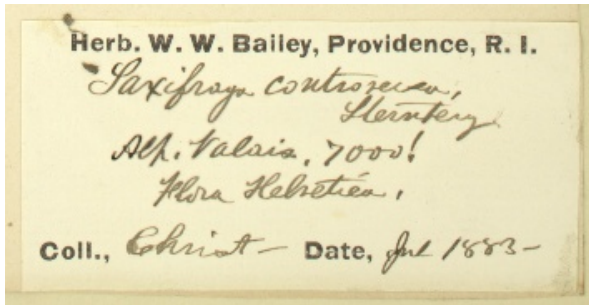 Herb. W. W. Bailey, Providence, R. I.
Saxifraga controversa,
Sternberg
Alp. Valais, 7000!
Flora Helvetica,
Coll., Christ — Date, Jul 1883 —